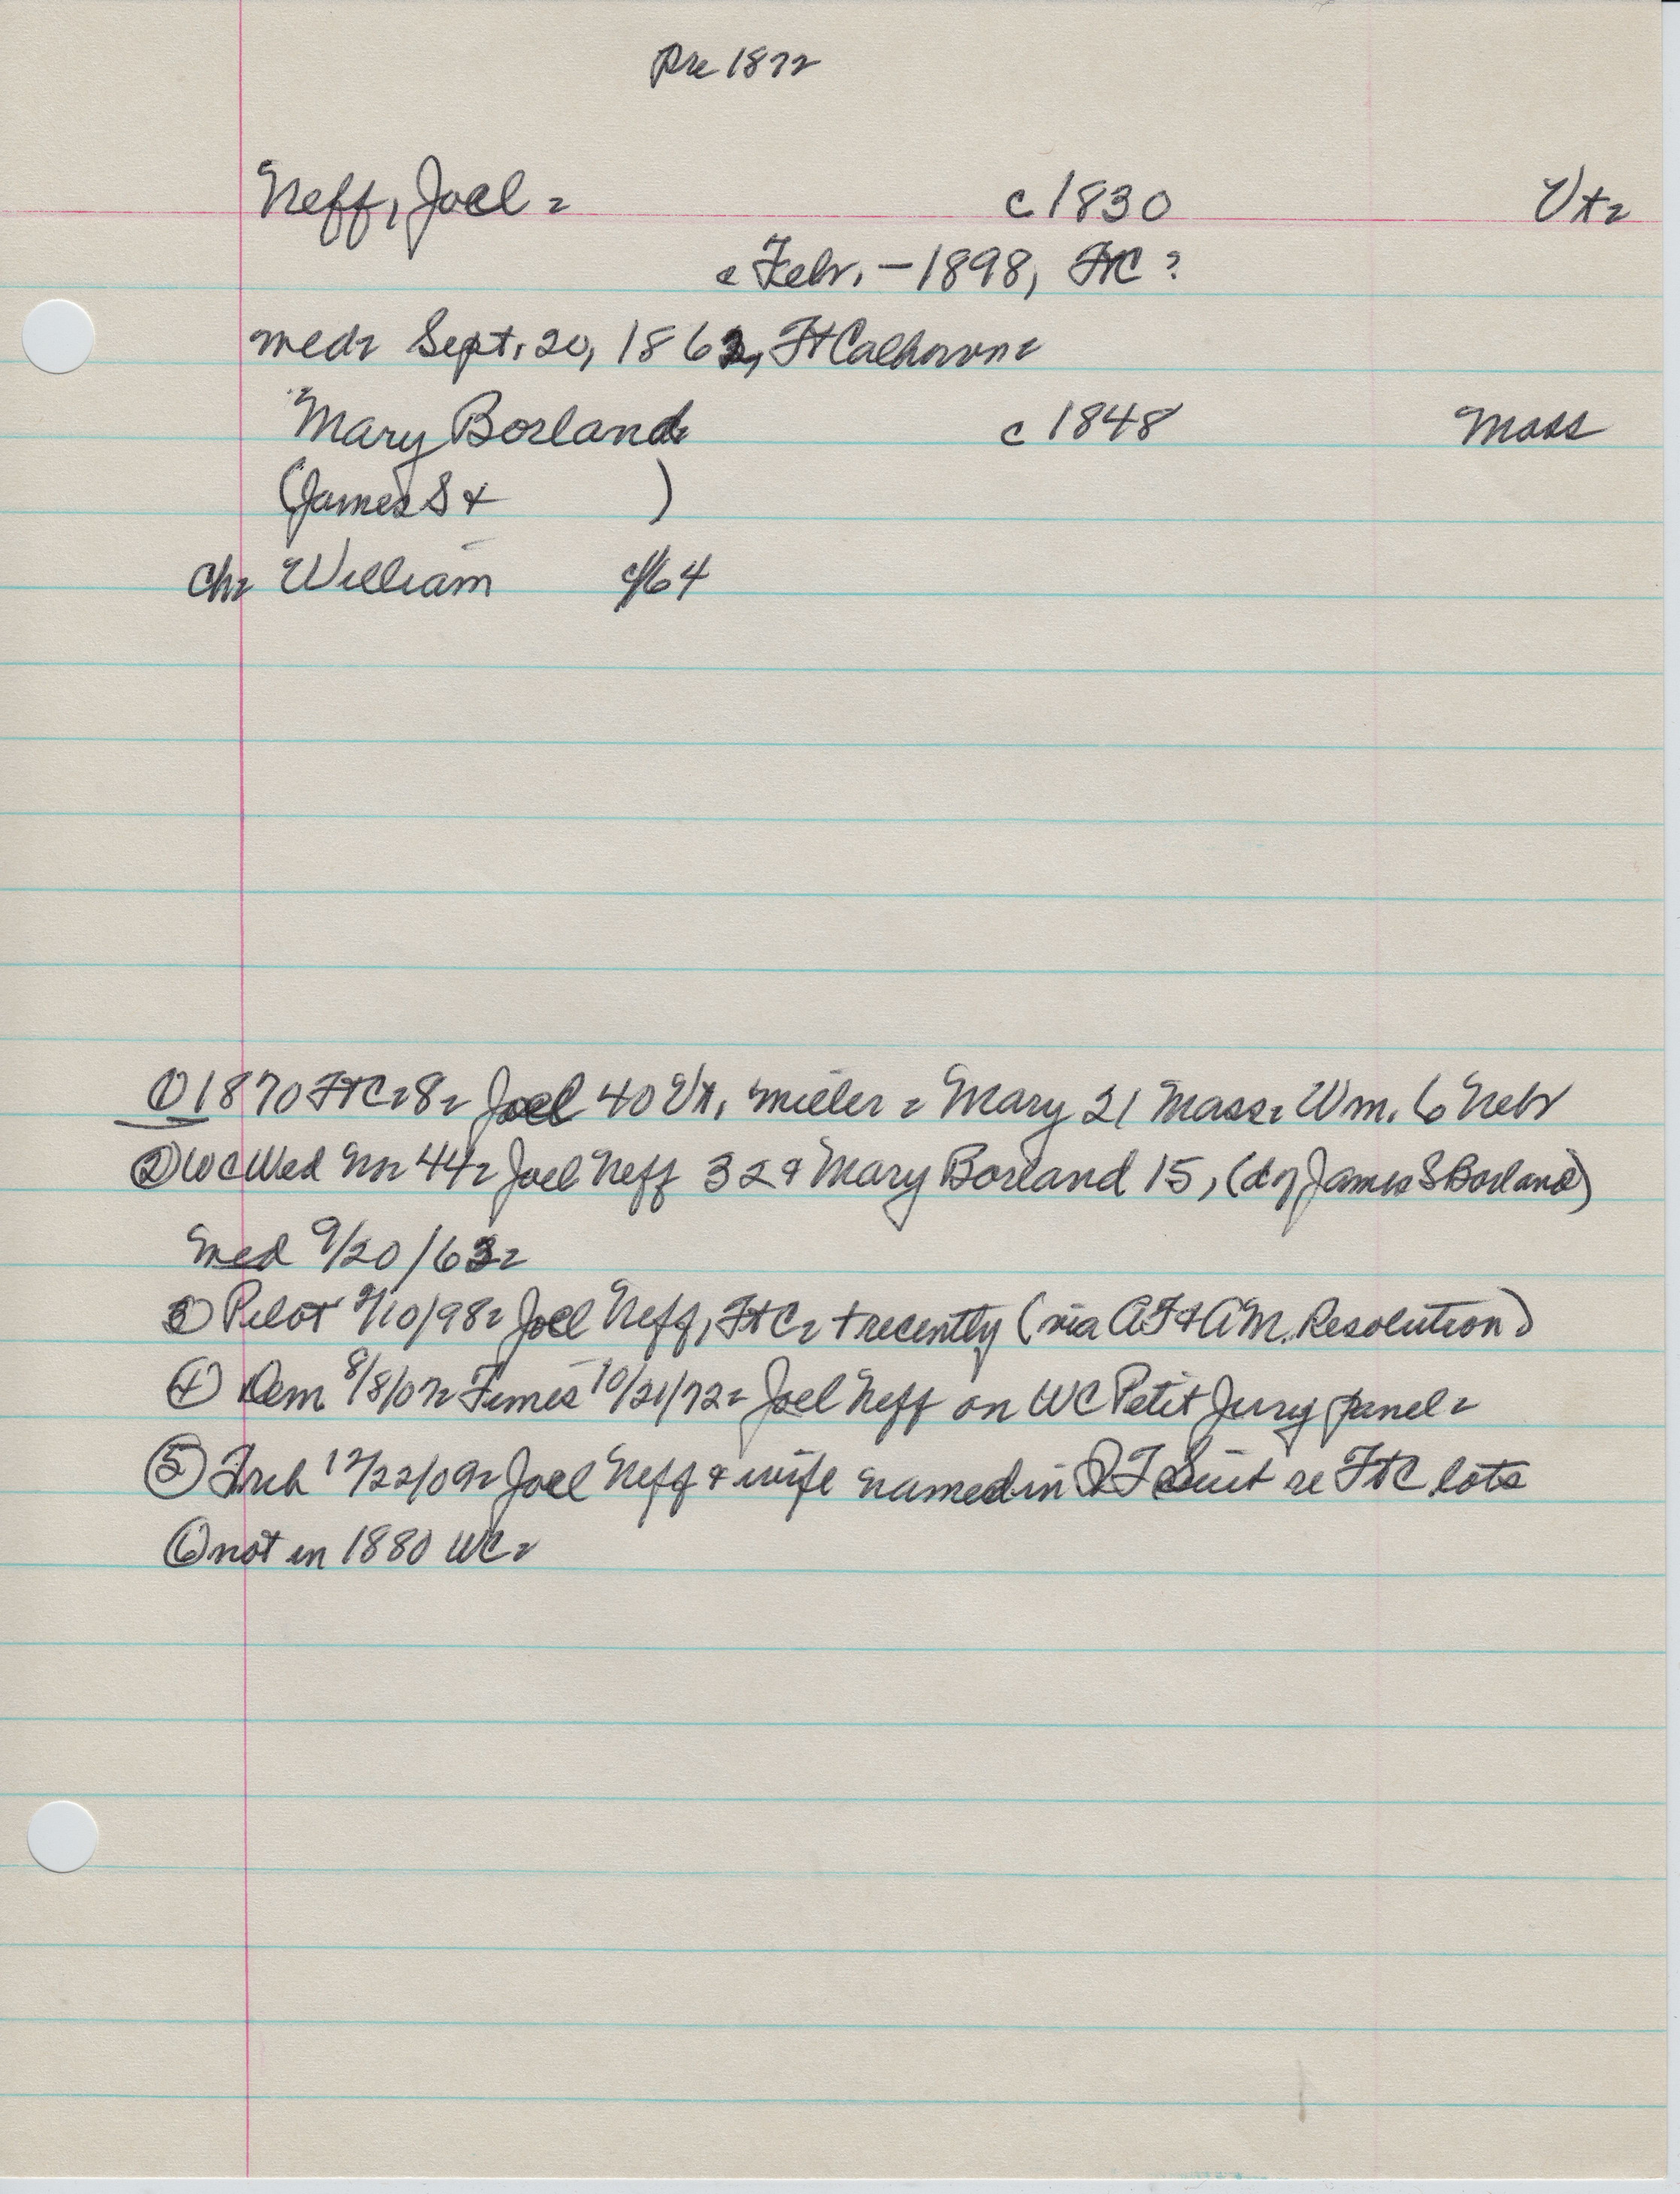 Pre 1872
Neff, Joel - c 1830 Vt -
c Febr. - 1898, FtC ?
med - Sept. 20, 1862, Ft Calhoun -
Mary Borland c 1848 Mass
(James S + )
ch - William c/64
① 1870 FtC - 8 - Joel 40 Vt, miller - Mary 21 Mass - Wm. 6 Nebr
② WC Wed 44 - Joel Neff 32 & Mary Borland 15, (d of James S Borland)
med 9/20/63 -
③ Pilot 3/10/98 - Joel Neff, FtC - + recently (via AF & AM. Resolution)
④ Dem 8/8/ Times 10/21/72 - Joel Neff on WC Petit Jury panel -
⑤ 12/22/09 - Joel Neff & wife named in QT Suit re FtC lots
⑥ not in 1880 WC -